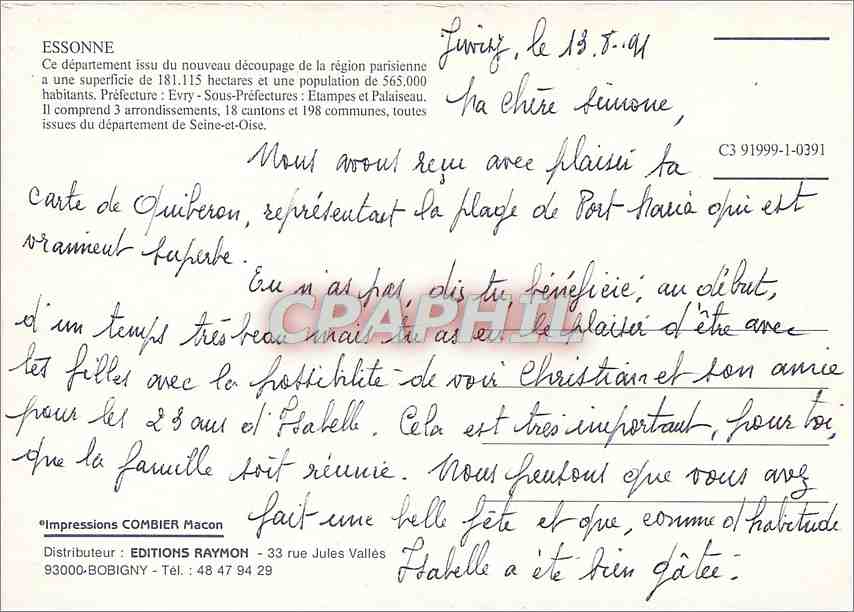 ESSONNE
Ce département issu du nouveau découpage de la région parisienne
a une superficie de 181.115 hectares et une population de 565.000
habitants. Préfecture : Evry - Sous-Préfectures : Etampes et Palaiseau.
Il comprend 3 arrondissements, 18 cantons et 198 communes, toutes
issues du département de Seine-et-Oise.
Juvisy, le 13.8.91
Ma Chère Simone,
C3 91999-1-0391
Nous avons reçu avec plaisir ta
carte de Quiberon, représentant la plage de Port Maria qui est
vraiment superbe.
Tu n'as pas, dis tu, bénéficié, au début,
d'un temps très beau mais tu as eu le plaisir d'être avec
tes filles avec la possibilité de voir Christian et son amie
pour les 23 ans d'Isabelle. Cela est très important, pour toi,
que la famille soit réunie. Nous pensons que vous avez
fait une belle fête et que, comme d'habitude
Isabelle a été bien gâtée.
CPAPHIL
®Impressions COMBIER Macon
Distributeur : EDITIONS RAYMON - 33 rue Jules Vallès
93000-BOBIGNY - Tél. : 48 47 94 29